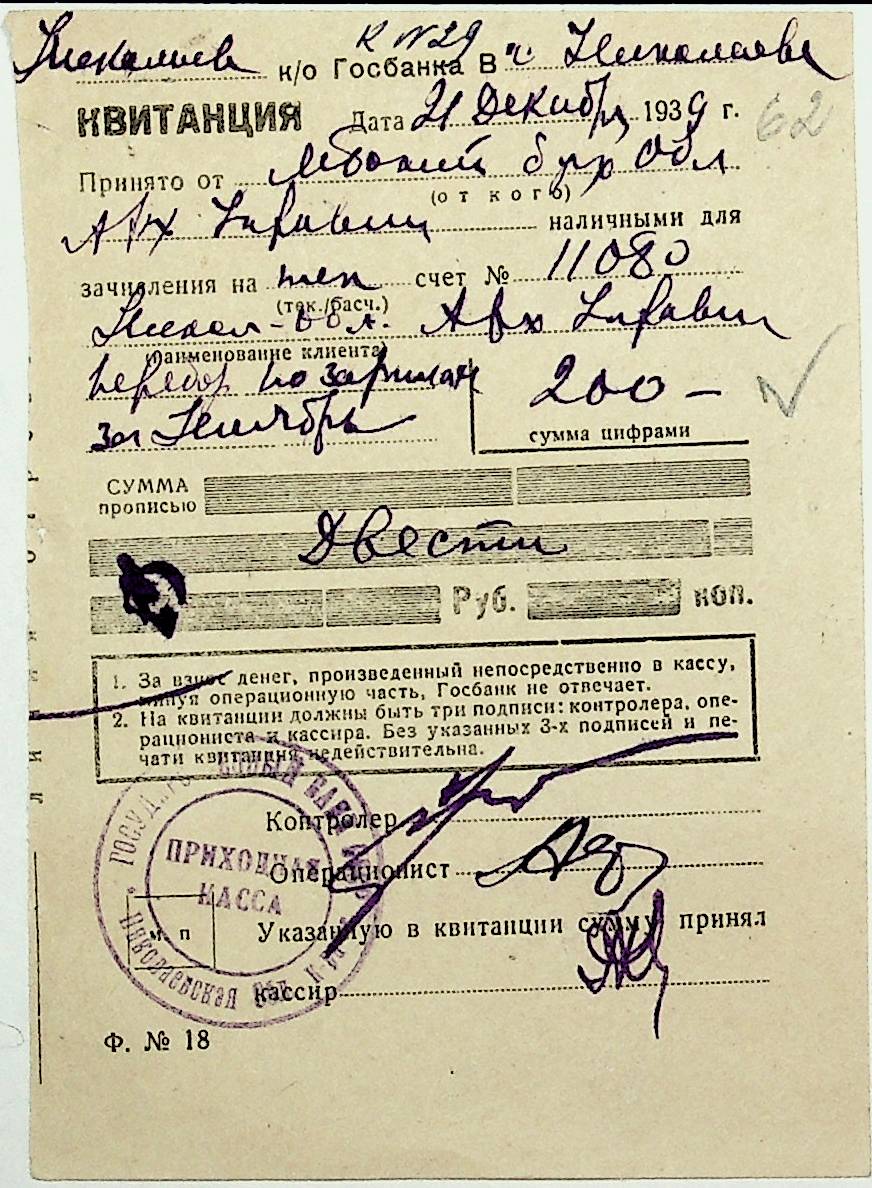 к N 29
Николаев к/о Госбанка В г. Николаеве
КВИТАНЦИЯ Дата 21 Декабр 1939 г. 62
Принято от бух Обл
(от кого)
Арх Управ наличными для
зачисления на тек счет № 11080
(тек./расч.)
Никол-Обл. Арх Управ
(наименование клиента)
перебор по зарплат
за Ноябрь
200 –
сумма цифрами
СУММА
прописью
Двести
Руб. коп.
1. За взнос денег, произведенный непосредственно в кассу,
минуя операционную часть, Госбанк не отвечает.
2. На квитанции должны быть три подписи: контролера, опе-
рациониста и кассира. Без указанных 3-х подписей и пе-
чати квитанция недействительна.
Контролер
Операционист
Указанную в квитанции сумму принял
м. п
кассир
ПРИХОДНАЯ
КАССА
Николаевская
Ф. № 18